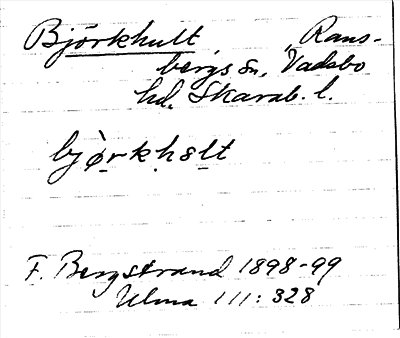 Björkhult, Rans-
bergs sn, Vadsbo
hd, Skarab. l.
bjø̀rkhslt
F. Bergstrand 1898-99
Ulma 111: 328